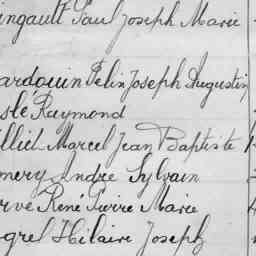 ingault Paul Joseph Marie
ardouin Félix Joseph Augustin
sle Raymond
lliet Marcel Jean Baptiste
mery André Sylvain
rve René Pierre Marie
grel Hilaire Joseph